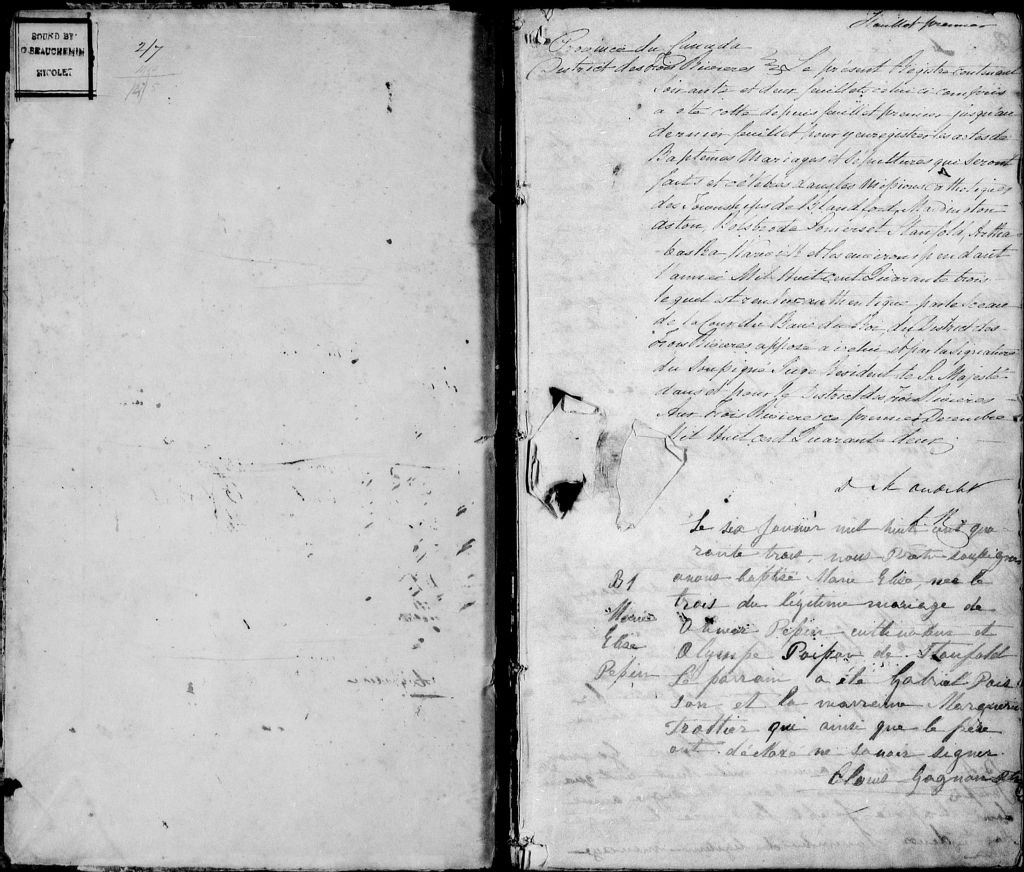 BOUND BY
O BEAUCHEMIN
NICOLET
2/7
Feuillet premier
Province du Canada
District des Trois Rivieres
Le présent Registre contenant
Soixante et deux feuillets celui ci compris
a été cotté depuis feuillet premier jusqu'au
dernier feuillet pour y enregistrer les actes de
Baptêmes Mariages et Sépultures qui seront
faits et célébrés dans les Missions Catholiques
des Townships de Blandford, Maddington
Aston, Bulstrode Somerset Stanfold, Artha
-baska Warwick et les environs pendant
l'année Mil Huit cent Quarante trois
lequel est rendu authentique par le Sceau
de la Cour du Banc du Roi, du District des
Trois Rivieres apposé à icelui et par la Signature
du Soussigné Juge Resident de Sa Majesté
dans et pour le District des Trois Rivieres
Aux Trois Rivieres ce premier Decembre
Mil Huit cent Quarante deux.
Le six Janvier mil huit cent qua
rante trois, nous Ptre soussigné
avons baptisé Marie Elise, née le
trois du légitime mariage de
Olivier Pepin cultivateur et
Olympe Poisson de Stanfold
Le parrain a été Gabriel Pois
son et la marraine Marguerite
Trottier qui ainsi que le père
ont déclaré ne savoir signer.
Clovis Gagnon Ptre
B1
Marie
Elise
Pepin